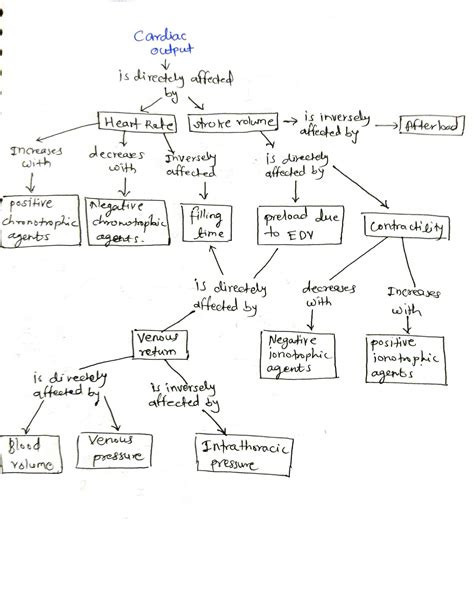 Cardiac
output
is directely affected
by
Heart Rate
stroke volume
is inversely
affected by
Afterload
Increases
with
decreases
with
Inversely
affected
is directely
affected by
positive
chronotrophic
agents
Negative
chronotrophic
agents.
filling
time
preload due
to EDV
contractility
is directely
affected by
decreases
with
Increases
with
Venous
return
Negative
ionotrophic
agents
positive
ionotrophic
agents
is directely
affected by
is inversely
affected by
Blood
volume
Venous
pressure
Intrathoracic
pressure